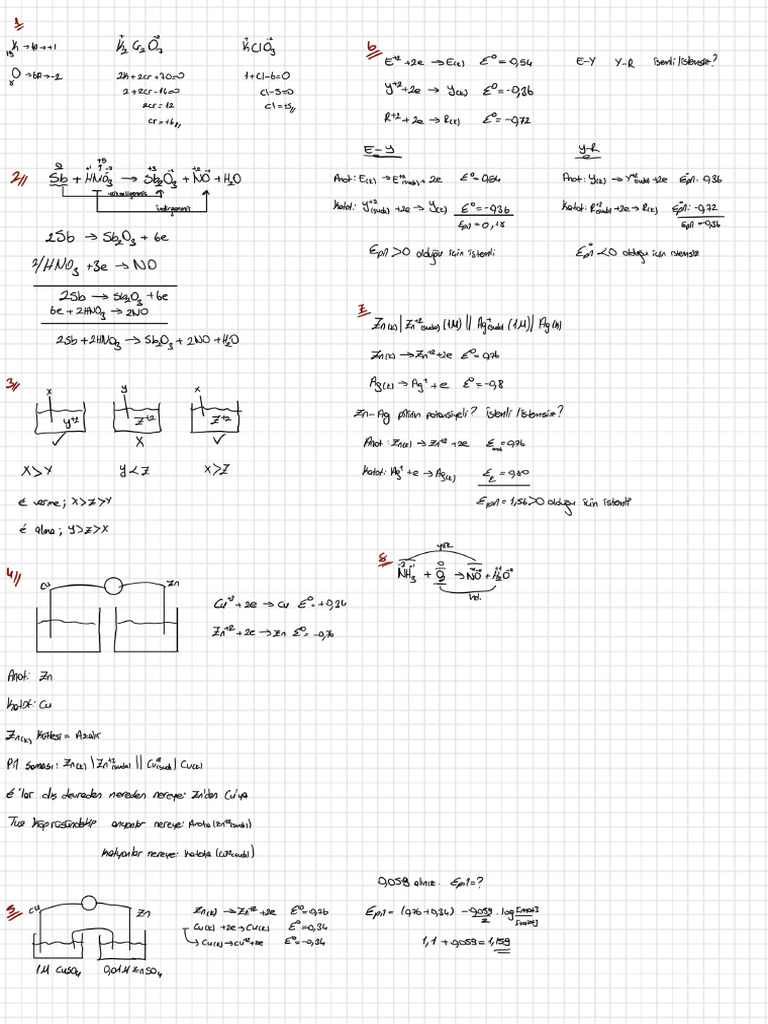 1
₁₉K → 1A → +1
K₂Cr₂O₇
KClO₃
₈O → 6A → -2
2K + 2cr + 7O = 0
2 + 2cr - 14 = 0
2cr = 12
cr = +6
1 + Cl - 6 = 0
Cl - 5 = 0
Cl = +5
2
Sb + HNO₃ → Sb₂O₃ + NO + H₂O
indirgenmiş
2Sb → Sb₂O₃ + 6e
2/ HNO₃ + 3e → NO
2Sb → Sb₂O₃ + 6e
6e + 2HNO₃ → 2NO
2Sb + 2HNO₃ → Sb₂O₃ + 2NO + H₂O
3
x y x
y⁺² Z⁺² Z⁺²
✓ X ✓
X > Y Y < Z X > Z
é verme; X > Z > Y
é alma; Y > Z > X
4
Cu Zn
Cu⁺² + 2e → Cu E⁰ = +0,34
Zn⁺² + 2e → Zn E⁰ = -0,76
Anot: Zn
Katot: Cu
Zn(k) Kütlesi = Azalır
Pil şeması: Zn(k) | Zn⁺²(suda) || Cu⁺²(suda) | Cu(k)
é'lar dış devreden nereden nereye: Zn'den Cu'ya
Tuz köprüsündeki anyonlar nereye: Anota (Zn⁺²(suda))
katyonlar nereye: katota (Cu⁺²(suda))
5
Cu Zn
1M CuSO₄ 0,01M ZnSO₄
Zn(k) → Zn⁺² + 2e E⁰ = 0,76
Cu(k) + 2e → Cu(k) E⁰ = 0,34
Cu(k) → Cu⁺² + 2e E⁰ = -0,34
0,059 alınız. Epil = ?
Epil = (0,76 + 0,34) - 0,059/2 . log [anot]/[katot]
1,1 + 0,059 = 1,159
6
E⁺² + 2e → E(k) E⁰ = 0,54
E-Y Y-R istemli/istemsiz?
Y⁺² + 2e → Y(k) E⁰ = -0,36
R⁺² + 2e → R(k) E⁰ = -0,72
E-Y
Anot: E(k) → E⁺²(suda) + 2e E⁰ = 0,54
Katot: Y⁺²(suda) + 2e → Y(k) E⁰ = -0,36
Epil = 0,18
Epil > 0 olduğu için istemli
Y-R
Anot: Y(k) → Y⁺²(suda) + 2e Epil: 0,36
Katot: R⁺²(suda) + 2e → R(k) Epil: -0,72
Epil = -0,36
Epil < 0 olduğu için istemsiz
7
Zn(k) | Zn⁺²(suda) (1M) || Ag⁺(suda) (1M) | Ag(k)
Zn(k) → Zn⁺² + 2e E⁰ = 0,76
Ag(k) → Ag⁺ + e E⁰ = -0,8
Zn-Ag pilinin potansiyeli? istemli/istemsiz?
Anot: Zn(k) → Zn⁺² + 2e E = 0,76
Katot: Ag⁺ + e → Ag(k) E = 0,80
Epil = 1,56 > 0 olduğu için istemli
8
yük.
NH₃ + O₂ → NO + H₂O
ind.